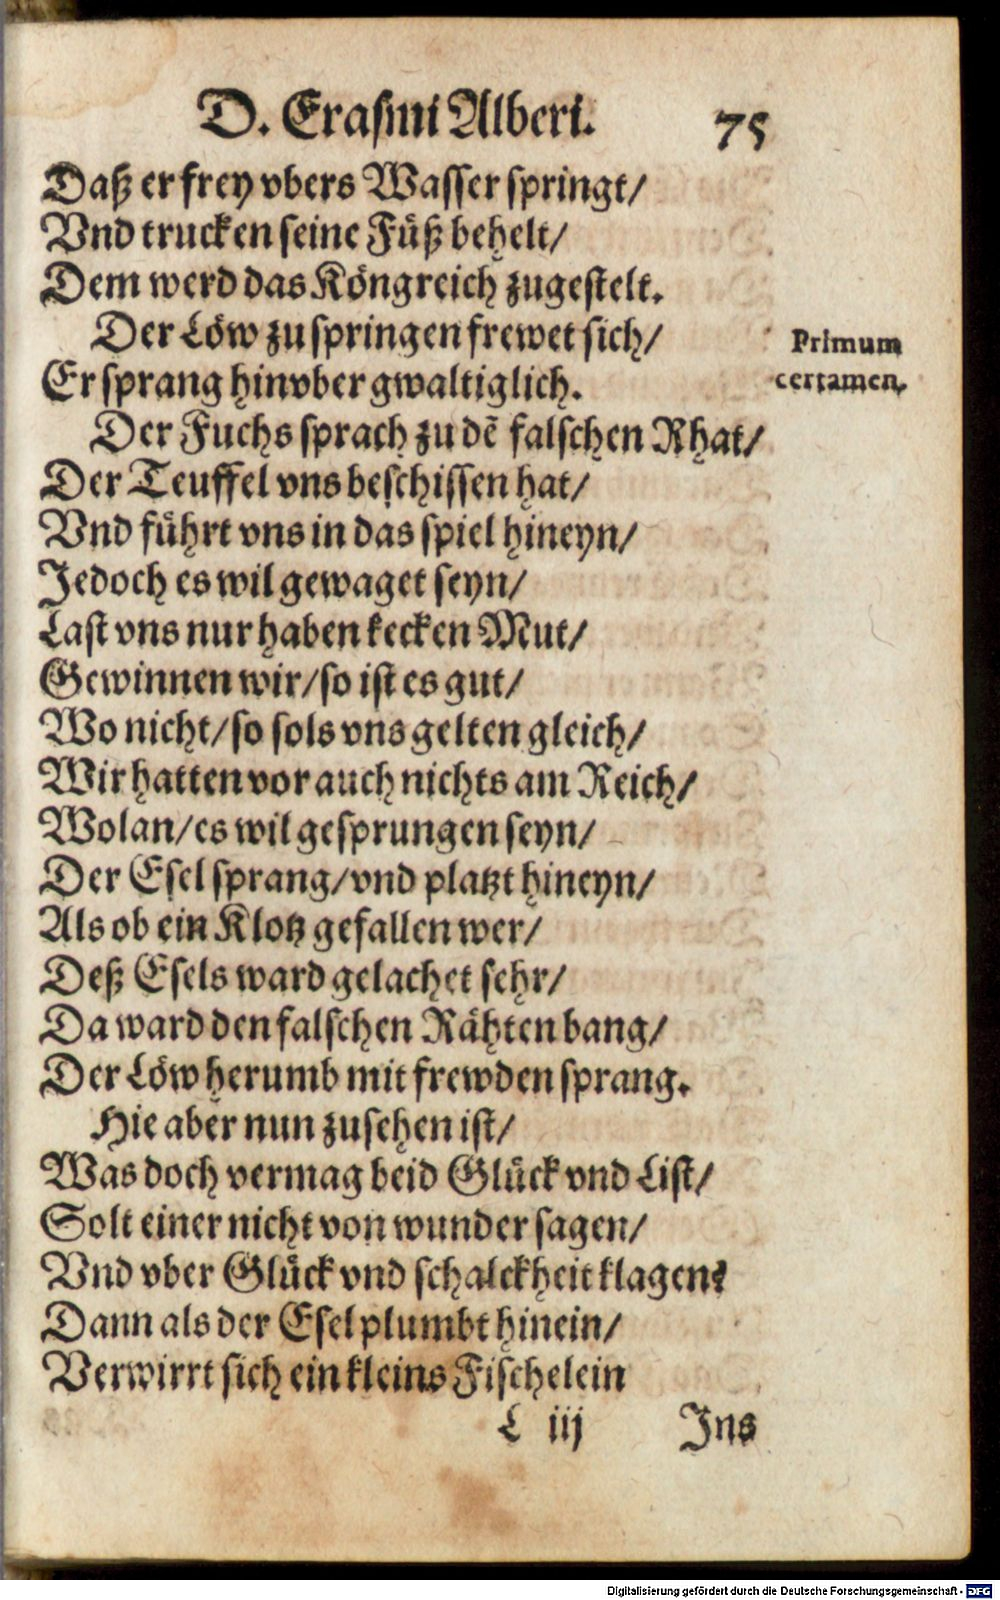 D. Erasmi Alberi. 75
Daß er frey vbers Wasser springt/
Vnd trucken seine Fuͤß behelt/
Dem werd das Koͤngreich zugestelt.
Der Loͤw zu springen frewet sich/
Primum
Er sprang hinvber gwaltiglich.
certamen.
Der Fuchs sprach zu dẽ falschen Rhat/
Der Teuffel vns beschissen hat/
Vnd fuͤhrt vns in das spiel hineyn/
Jedoch es wil gewaget seyn/
Last vns nur haben kecken Mut/
Gewinnen wir/so ist es gut/
Wo nicht/so sols vns gelten gleich/
Wir hatten vor auch nichts am Reich/
Wolan/es wil gesprungen seyn/
Der Esel sprang/vnd platzt hineyn/
Als ob ein Klotz gefallen wer/
Deß Esels ward gelachet sehr/
Da ward den falschen Raͤhten bang/
Der Loͤw herumb mit frewden sprang.
Hie aber nun zusehen ist/
Was doch vermag beid Gluͤck vnd List/
Solt einer nicht von wunder sagen/
Vnd vber Gluͤck vnd schalckheit klagen?
Dann als der Esel plumbt hinein/
Verwirrt sich ein kleins Fischelein
L iij Jns
Digitalisierung gefördert durch die Deutsche Forschungsgemeinschaft - DFG